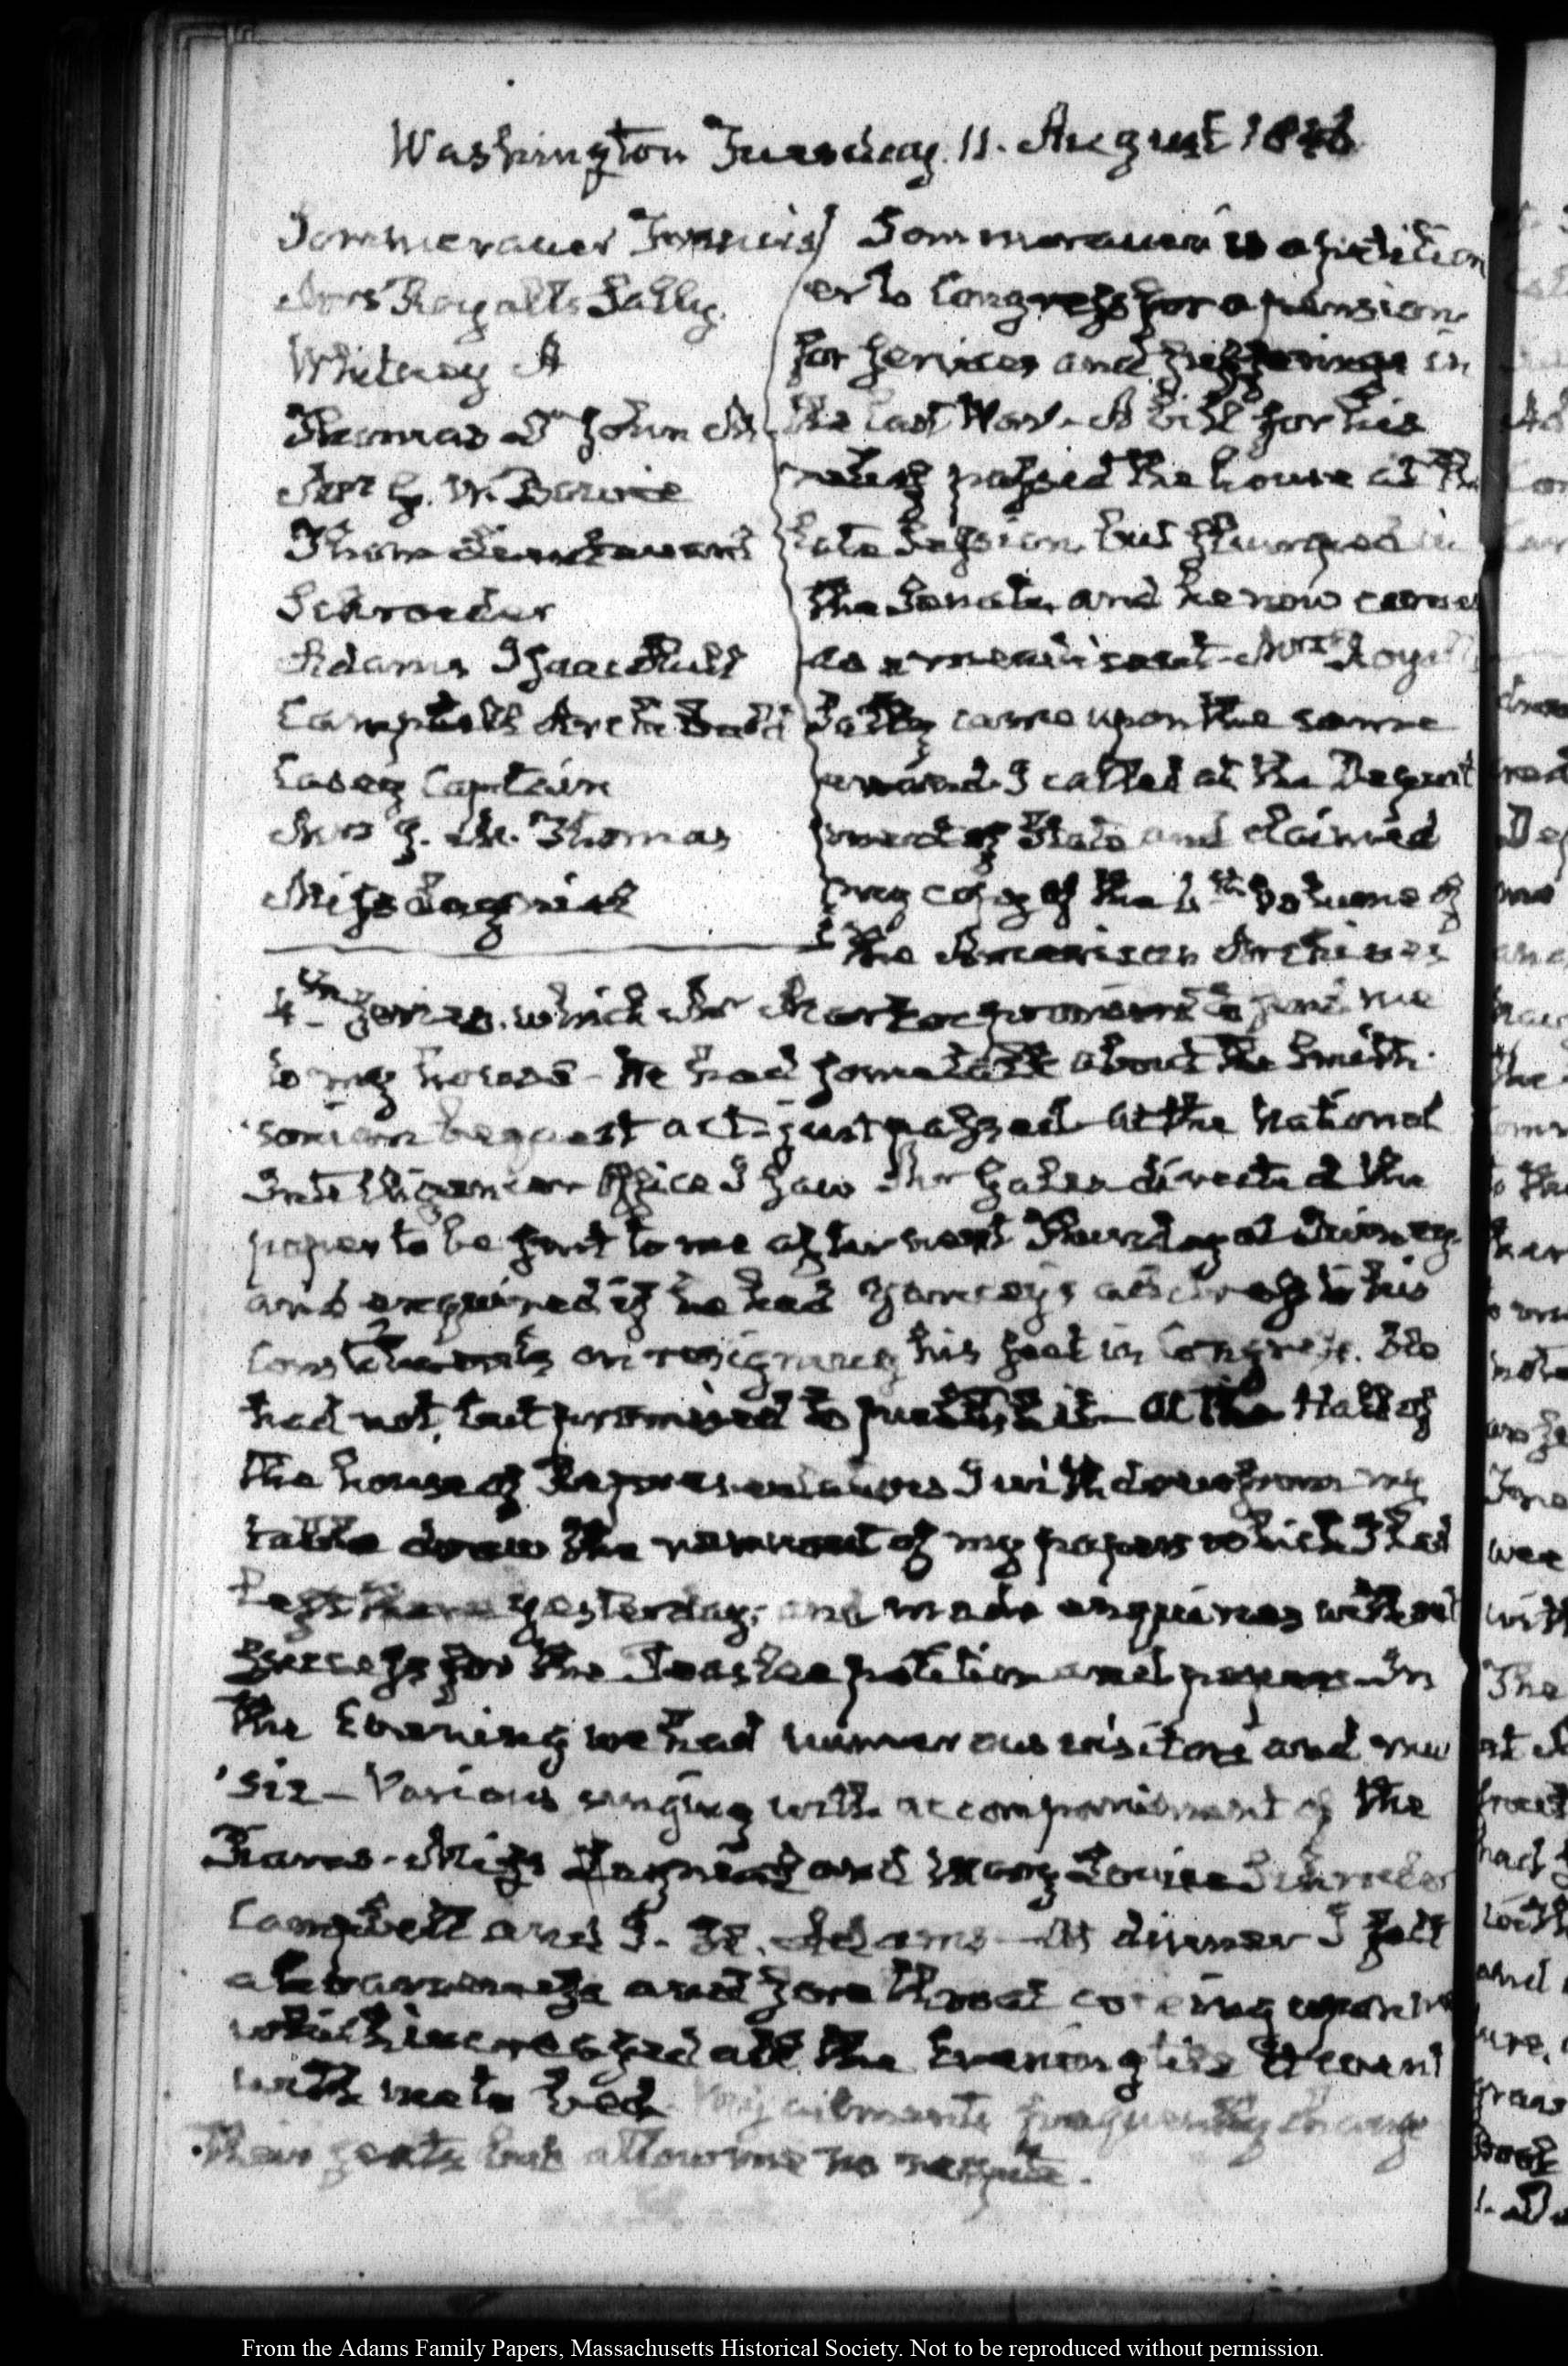 Washington Tuesday. 11. August 1846
Sommerauer Francis
Mrs Royall & Sally.
Whitney A
Thomas John M
Mrs
Thom
Schroeder
Adams Isaac Hull
Campbell Archibald
Casey Captain
Mrs J. M. Thomas
Miss
Sommerauer is a petition
er to Congress for a pension
for services and sufferings in
the last War. A bill for his
relief passed the house at the
late Session, but in
the Senate, and he now comes
as a mendicant. Mrs Royall
Sally came upon the same
errand. I called at the Depart
ment of State and claimed
my copy of the 6th Volume of
the American Archives
4th Series. which Mr Markoe promised to send me
to my house. He had some talk about the Smith-
sonian bequest act just passed. At the National
Intelligencer Office I saw Mr Gales directed the
paper to be sent to me after next Thursday at Quincy.
and enquired if he had Yancey's address to his
Constituents on resigning his seat in Congress. He
had not, but promised to publish it. At the Hall of
the house of Representatives I withdrew from my
table draw the remnant of my papers which I had
left there yesterday; and made enquiries without
success for the petition and papers. In
the Evening we had numerous visitors and mu
sic – Various singing with accompaniment of the
Piano. Miss and Mary Louisa Schroeder
Campbell and I. H. Adams – At dinner I felt
a hoarseness and sore throat coming upon me
which increased all the Evening till it went
with me to bed. My ailments frequently change
their seats but allow me no respite.
From the Adams Family Papers, Massachusetts Historical Society. Not to be reproduced without permission.